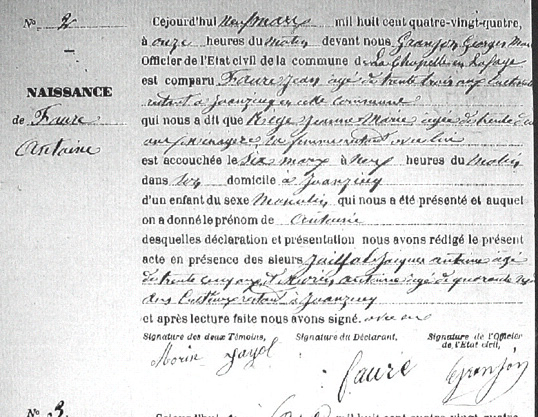 No 2
NAISSANCE
de Faure
Antoine
Cejourd'hui neuf mars mil huit cent quatre-vingt-quatre,
à onze heures du matin devant nous Granjon Georges
Officier de l'Etat civil de la commune de La Chapelle en Lafaye
est comparu Faure Jean agé de trente trois ans
restant à Juanzieng en cette commune
qui nous a dit que Jeanne Marie agée de trente
ans ménagère sa femme restant avec lui
est accouchée le six mars à heures du matin
dans son domicile à Juanzieng
d'un enfant du sexe Masculin qui nous a été présenté et auquel
on a donné le prénom de Antoine
desquelles déclaration et présentation nous avons rédigé le présent
acte en présence des sieurs Jacques antoine agé
de trente cinq ans et Morin antoine agé de quarante
restant à Juanzieng
et après lecture faite nous avons signé.
Signature des deux Témoins, Signature du Déclarant, Signature de l'Officier
de l'Etat civil,
Morin Jayol faure Granjon
No 3
mil huit cent quatre-vingt-quatre